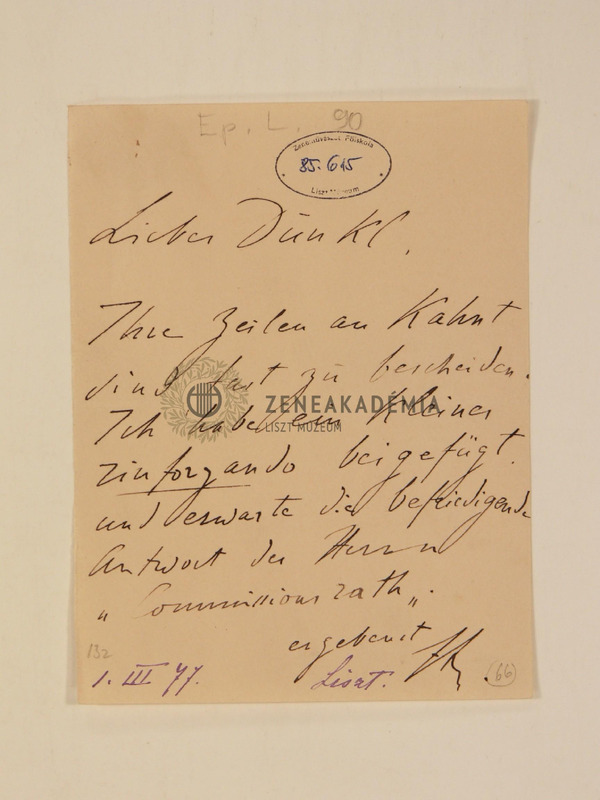 Ep. L. 90
Zeneművészeti Főiskola
85.615
Liszt Múzeum
Lieber Dunkl,
Ihre Zeilen an Kahnt
sind fast zu bescheiden.
Ich habe ein kleines
rinforzando beigefügt.
und erwarte die befriedigende
Antwort des Herrn
„Commissionsrath„.
ergebenst
132
1. III 77.
Liszt.
66
ZENEAKADÉMIA
LISZT MÚZEUM